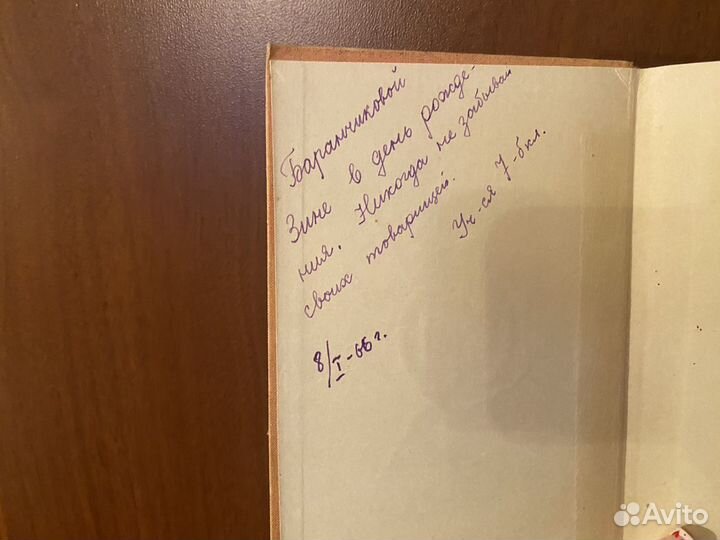 Баранчиковой
Зине в день рожде-
ния. Никогда не забывай
своих товарищей.
Уч-ся 7-б кл.
8/I-66 г.
Avito